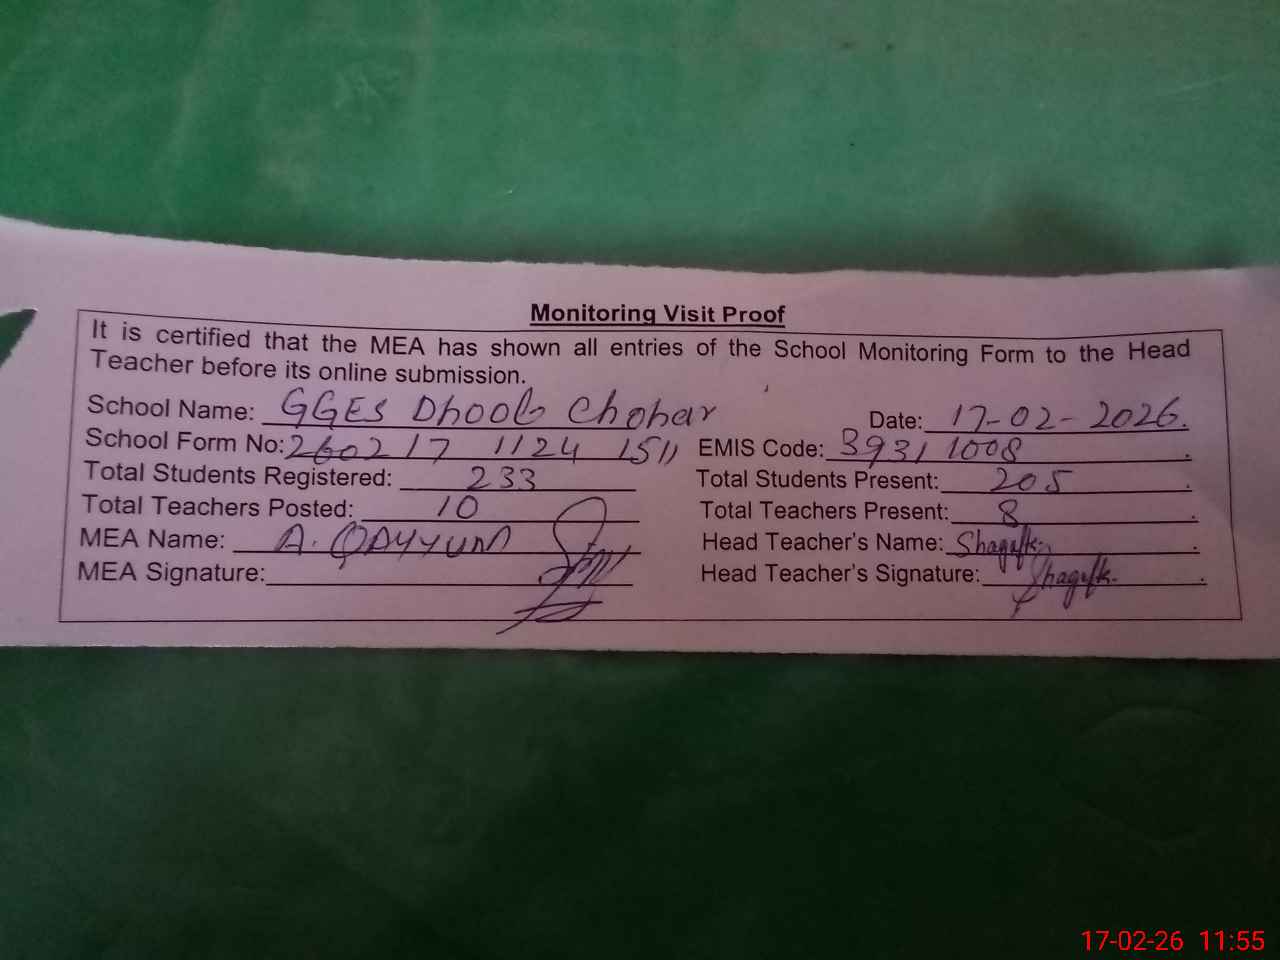 Monitoring Visit Proof
It is certified that the MEA has shown all entries of the School Monitoring Form to the Head
Teacher before its online submission.
School Name: GGES Dhoob Chohar Date: 17-02-2026.
School Form No: 260217 1124 1511 EMIS Code: 39311008
Total Students Registered: 233 Total Students Present: 205
Total Teachers Posted: 10 Total Teachers Present: 8
MEA Name: A. QAYYUM Head Teacher's Name: Shagufta
MEA Signature: Head Teacher's Signature: Shagufta
17-02-26 11:55